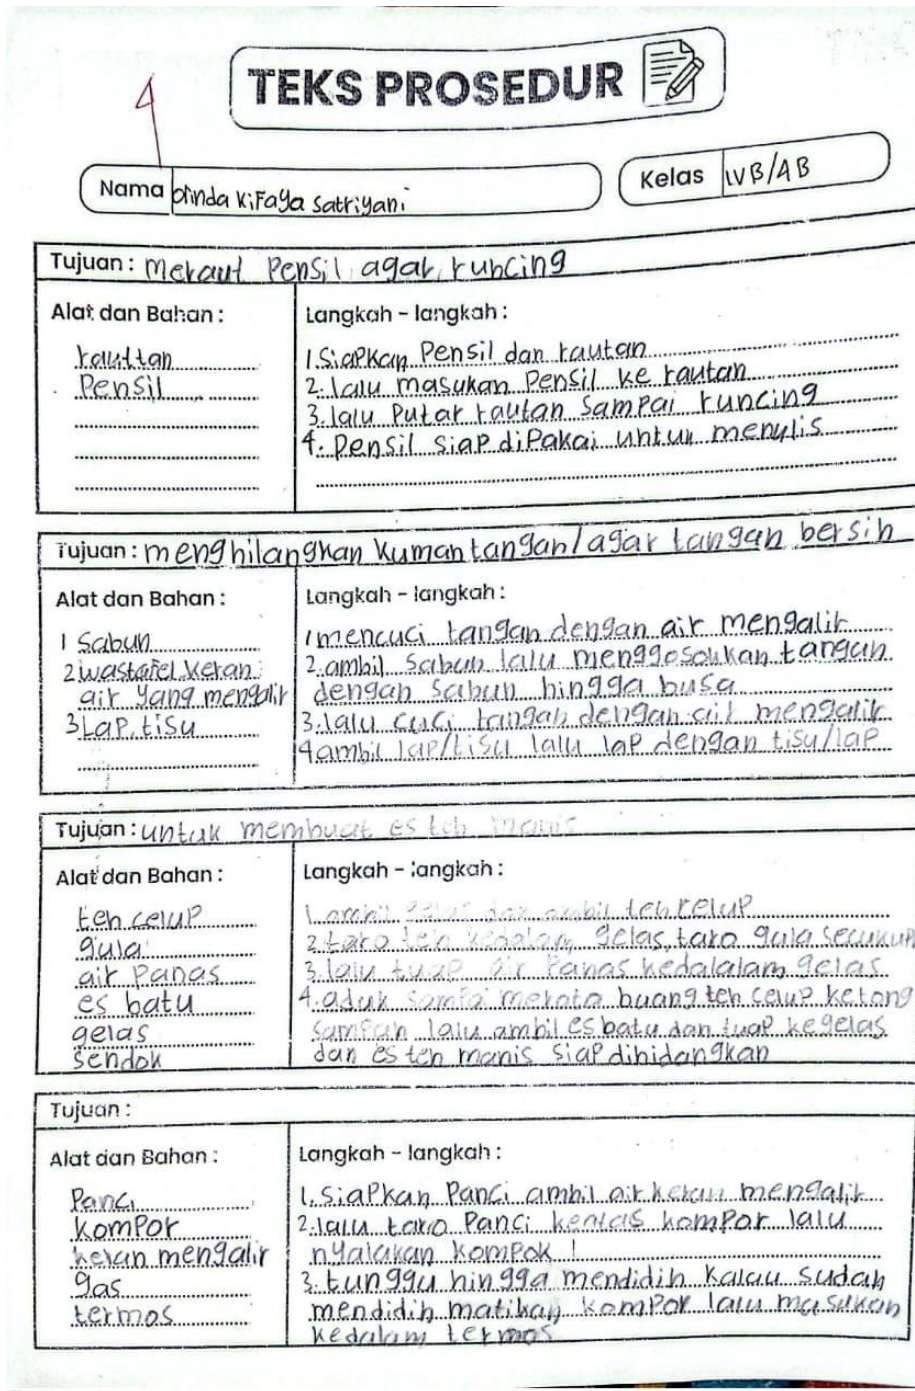 TEKS PROSEDUR
4
Nama Dinda Kifaya Satriyani
Kelas IVB/4B
Tujuan : Meraut Pensil agar runcing
Alat dan Bahan :
rauttan
Pensil
Langkah - langkah :
1. Siapkan Pensil dan rautan
2. lalu masukan Pensil ke rautan
3. lalu Putar rautan Sampai runcing
4. Pensil Siap diPakai untuk menulis
Tujuan : menghilangkan kuman tangan/agar tangan bersih
Alat dan Bahan :
1 Sabun
2 wastafel keran
air yang mengalir
3 Lap, tisu
Langkah - langkah :
1 mencuci tangan dengan air mengalir
2. ambil sabun lalu menggosoukan tangan
dengan sabun hingga busa
3. lalu cuci tangan dengan air mengalir
4 ambil lap/tisu lalu lap dengan tisu/lap
Tujuan : untuk membuat es teh manis
Alat dan Bahan :
teh celup
gula
air panas
es batu
gelas
sendok
Langkah - langkah :
1. ambil gelas dan ambil teh celup
2. taro teh kedalam gelas, taro gula secukup
3. lalu tuap air Panas kedalalam gelas
4. aduk samfai merata buang teh celup ketong
samfah lalu ambil es batu dan tuap kegelas
dan es teh manis siap dihidangkan
Tujuan :
Alat dan Bahan :
Panci
kompor
keran mengalir
gas
termos
Langkah - langkah :
1. Siapkan Panci ambil air keran mengalir
2. lalu taro Panci keatas kompor lalu
nyalakan kompor !
3. tunggu hingga mendidih kalau sudah
mendidih matikan kompor lalu masukan
kedalam termos